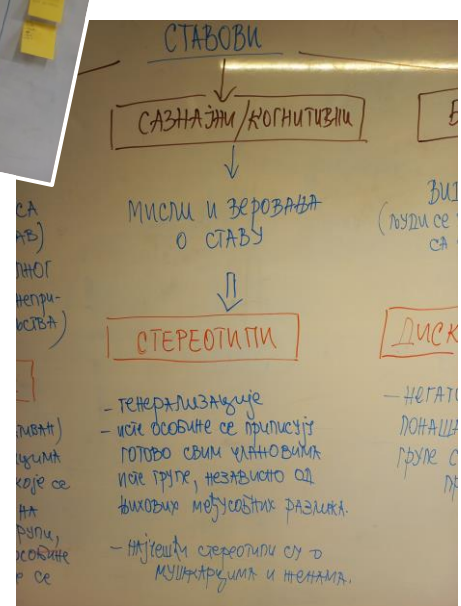 СТАВОВИ
САЗНАЈНИ/КОГНИТИВНИ
МИСЛИ И ВЕРОВАЊА
О СТАВУ
СТЕРЕОТИПИ
- ГЕНЕРАЛИЗАЦИЈЕ
- ИСТЕ ОСОБИНЕ СЕ ПРИПИСУЈУ
ГОТОВО СВИМ ЧЛАНОВИМА
ИСТЕ ГРУПЕ, НЕЗАВИСНО ОД
ЊИХОВИХ МЕЂУСОБНИХ РАЗЛИКА.
- НАЈЧЕШЋИ СТЕРЕОТИПИ СУ О
МУШКАРЦИМА И ЖЕНАМА.
СА
АВ)
ЛНОГ
НЕПРИ-
ЦИМА
КОЈЕ СЕ
НА
ОСОБИНЕ
СЕ
(ЉУДИ СЕ
СА
ДИСК
- НЕГАТ
ПОНАША
ГРУПЕ С